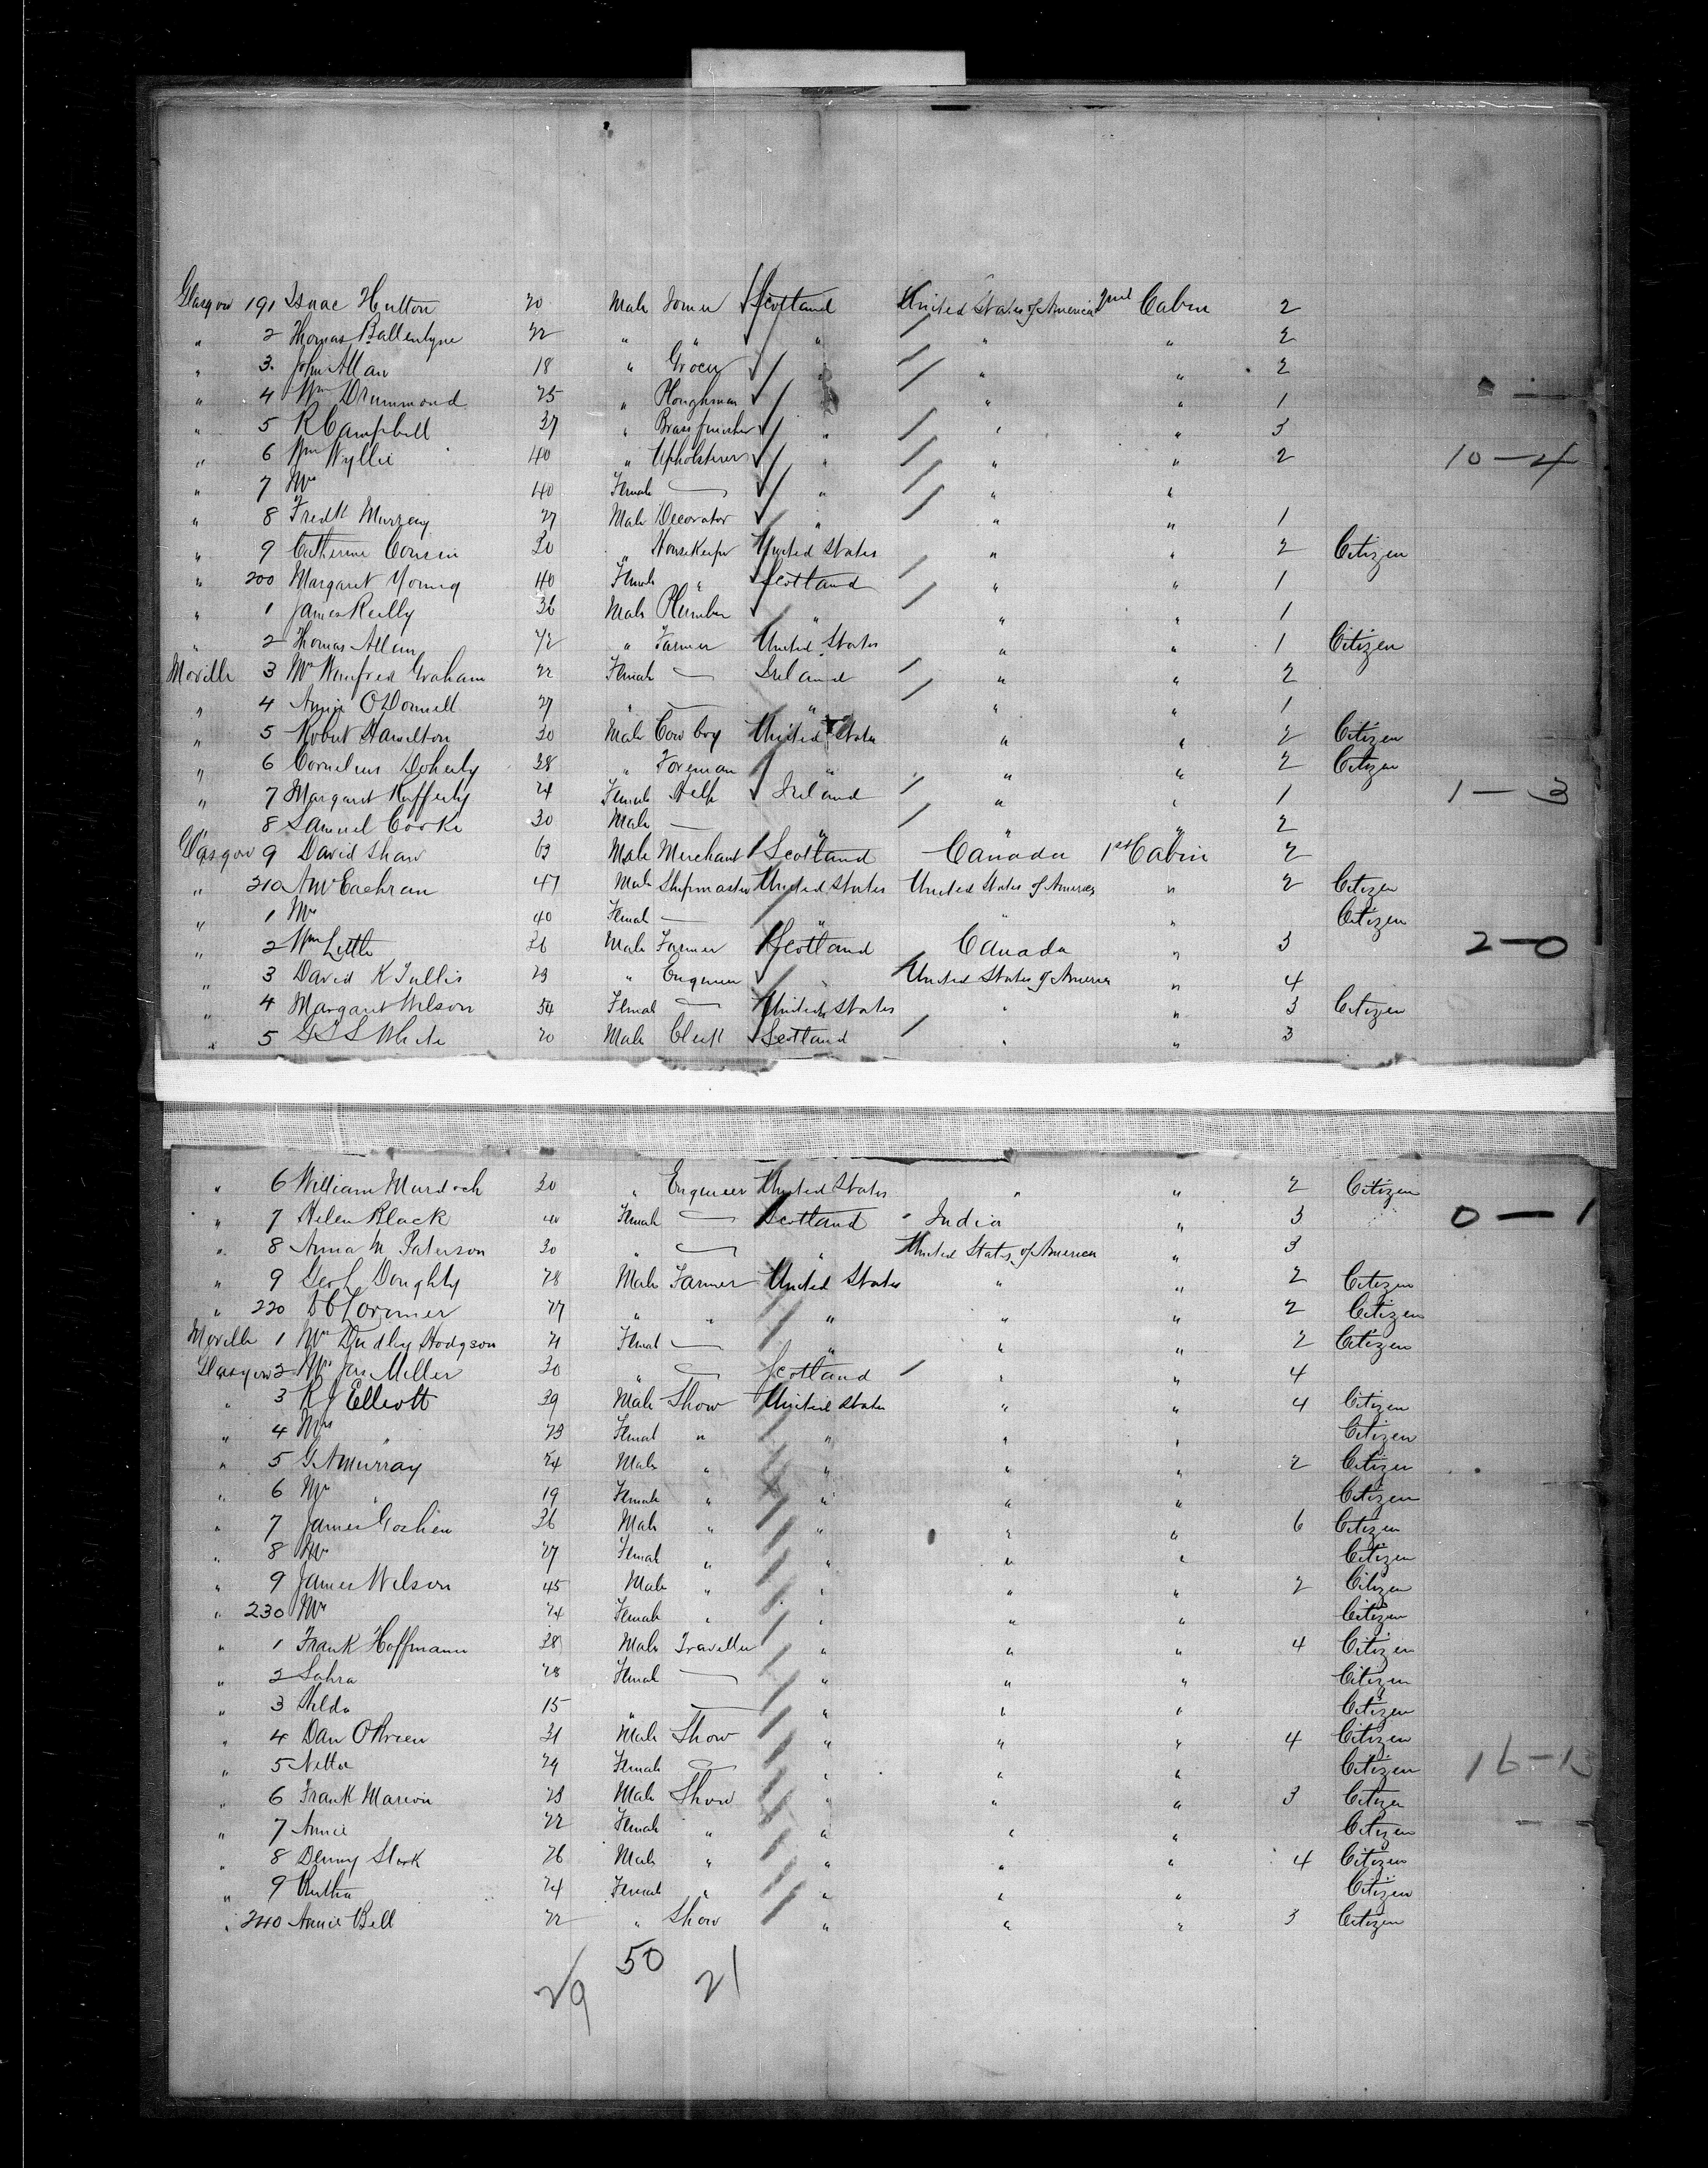 Glasgow 191 Isaac Hutton 20 Male Joiner Scotland United States of America 2nd Cabin 2
" 2 Thomas Ballentyne 22 " " " " " 2
" 3. John Allan 18 " Grocer " " " 2
" 4 Wm Drummond 25 " Ploughman " " " 1
" 5 R Campbell 37 " Brass finisher " " " 3
" 6 Wm Wyllie 40 " Upholsterer " " " 2 10 - 4
" 7 Mrs 40 Female — " " "
" 8 Fredk Murray 27 Male Decorator " " " 1
" 9 Catherine Cousin 30 " HouseKeeper United States " " 2 Citizen
" 200 Margaret Young 40 Female " Scotland " " 1
" 1 James Reilly 36 Male Plumber " " " 1
" 2 Thomas Allan 42 " Farmer United States " " 1 Citizen
Moville 3 Mrs Graham 22 Female — Ireland " " 2
" 4 Annie O'Donnell 27 " — " " " 1
" 5 Robert Hamilton 30 Male Cow boy United States " " 2 Citizen
" 6 Cornelius Doherty 38 " Foreman " " " 2 Citizen
" 7 Margaret Rafferty 24 Female Help Ireland " " 1 1 - 3
" 8 Samuel Cooke 30 Male — " " " 2
Glasgow 9 David Shaw 63 Male Merchant Scotland Canada 1st Cabin 2
" 210 A McEachran 47 Male Shipmaster United States United States of America " 2 Citizen
" 1 Mrs 40 Female — " " " Citizen
" 2 Wm Little 36 Male Farmer Scotland Canada " 3 2 - 0
" 3 David K Tullis 23 " Engineer " United States of America " 4
" 4 Margaret Wilson 54 Female — United States " " 3 Citizen
" 5 White 20 Male Clerk Scotland " " 3
" 6 William Murdoch 30 " Engineer United States " " 2 Citizen
" 7 Helen Black 40 Female — Scotland India " 3 0 - 1
" 8 Anna M Paterson 30 " — " United States of America " 3
" 9 Geo L Doughty 28 Male Farmer United States " " 2 Citizen
" 220 D C Lorimer 27 " " " " " 2 Citizen
Moville 1 Mrs Dudley Hodgson 21 Female — " " " 2 Citizen
Glasgow 2 Mrs Jas Miller 30 " — Scotland " " 4
" 3 R J Elliott 39 Male Show United States " " 4 Citizen
" 4 Mrs " 23 Female " " " " Citizen
" 5 G A Murray 24 Male " " " " 2 Citizen
" 6 Mrs " 19 Female " " " " Citizen
" 7 James 36 Male " " " " 6 Citizen
" 8 Mrs 27 Female " " " " Citizen
" 9 James Wilson 45 Male " " " " 2 Citizen
" 230 Mrs 24 Female " " " " Citizen
" 1 Frank Hoffmann 38 Male Traveller " " " 4 Citizen
" 2 Sahra 28 Female — " " " Citizen
" 3 Hilda 15 " — " " " Citizen
" 4 Dan O'Brien 31 Male Show " " " 4 Citizen
" 5 Nettie 29 Female — " " " Citizen 16 -
" 6 Frank Marion 23 Male Show " " " 3 Citizen
" 7 Annie 22 Female " " " " Citizen
" 8 Denny 26 Male " " " " 4 Citizen
" 9 24 Female " " " " Citizen
" 240 Annie Bell 22 " Show " " " 3 Citizen
50
29 21